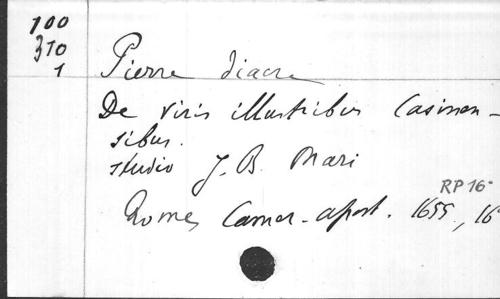 100
310
1
Pierre diacre
De viris illustribus Casinen-
sibus.
studio J. B. Mari
RP 16°
Rome, Camer. apost. 1655, 16